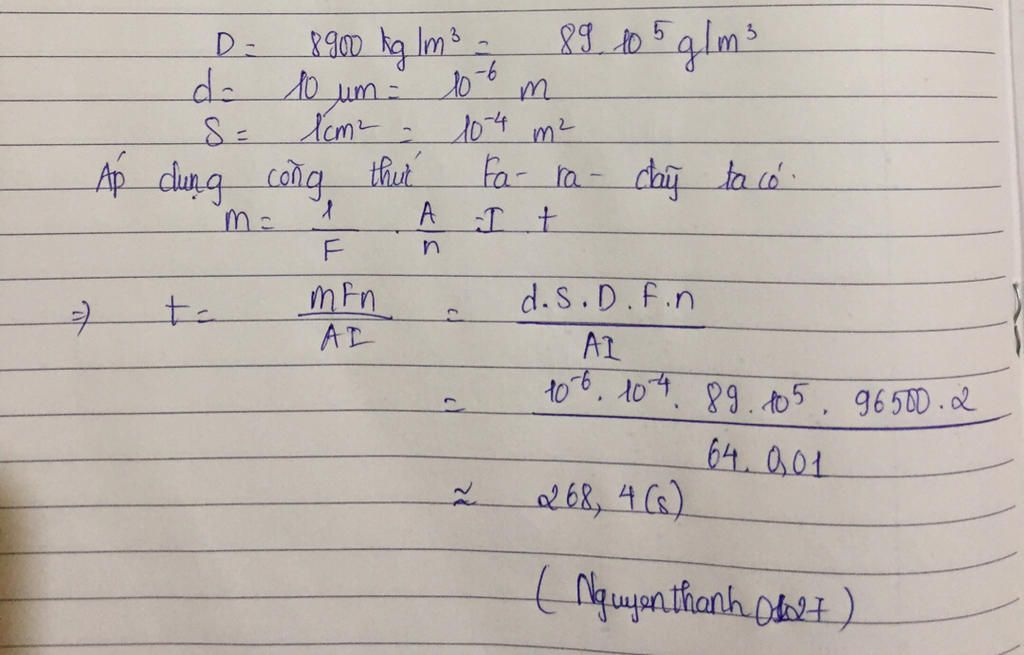 D = 8900 kg/m³ = 89.10⁵ g/m³
d = 10 µm = 10⁻⁶ m
S = 1cm² = 10⁻⁴ m²
Áp dụng công thức Fa-ra-đây ta có.
m = 1/F . A/n .I t
=> t = mFn/AI = d.S.D.F.n/AI
= 10⁻⁶ . 10⁻⁴ . 89.10⁵ . 96500.2/64.0,01
≈ 268,4 (s)
(Nguyenthanh0127)